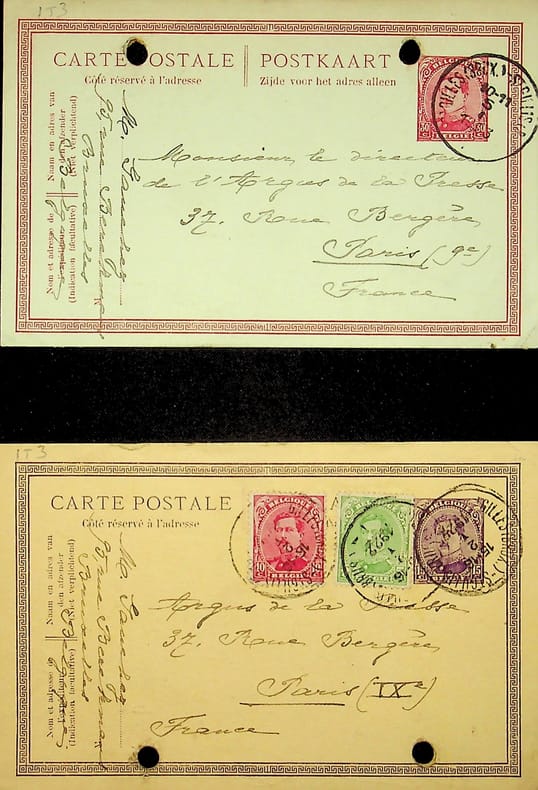 1T3
CARTE POSTALE
Côté réservé à l'adresse
POSTKAART
Zijde voor het adres alleen
BELGIQUE
Nom et adresse de
(Indication facultative)
Naam en adres van
den afzender
(Niet verplichtend)
M. Sancher
rue
Bruxelles
Belgique
Monsieur le directeur
de l'Argus de la Presse
37. Rue Bergère
Paris (9e)
France
1T3
CARTE POSTALE
Côté réservé à l'adresse
BELGIQUE
10
BELGIË
15
1922
Nom et adresse
(Indication facultative)
Naam en adres van
den afzender
(Niet verplichtend)
M. Sancher
rue
Bruxelles
Belgique
Argus de la Presse
37. Rue Bergère
Paris (IXe)
France